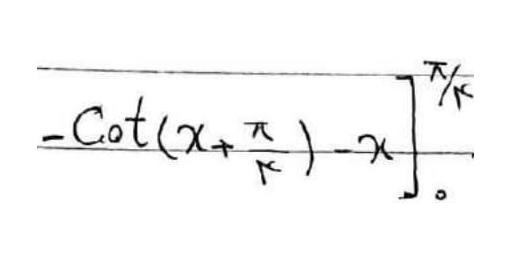 -Cot(x+π/۴)-x]₀^π/۴